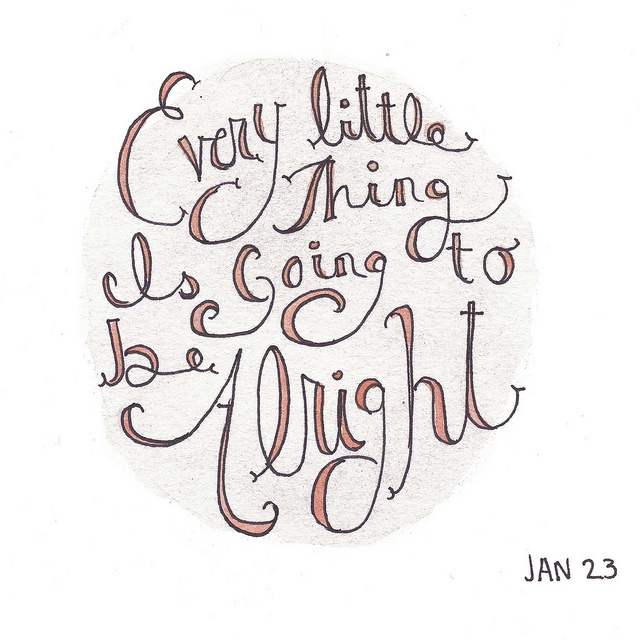 Every little
Thing
Is Going to
be Alright
JAN 23